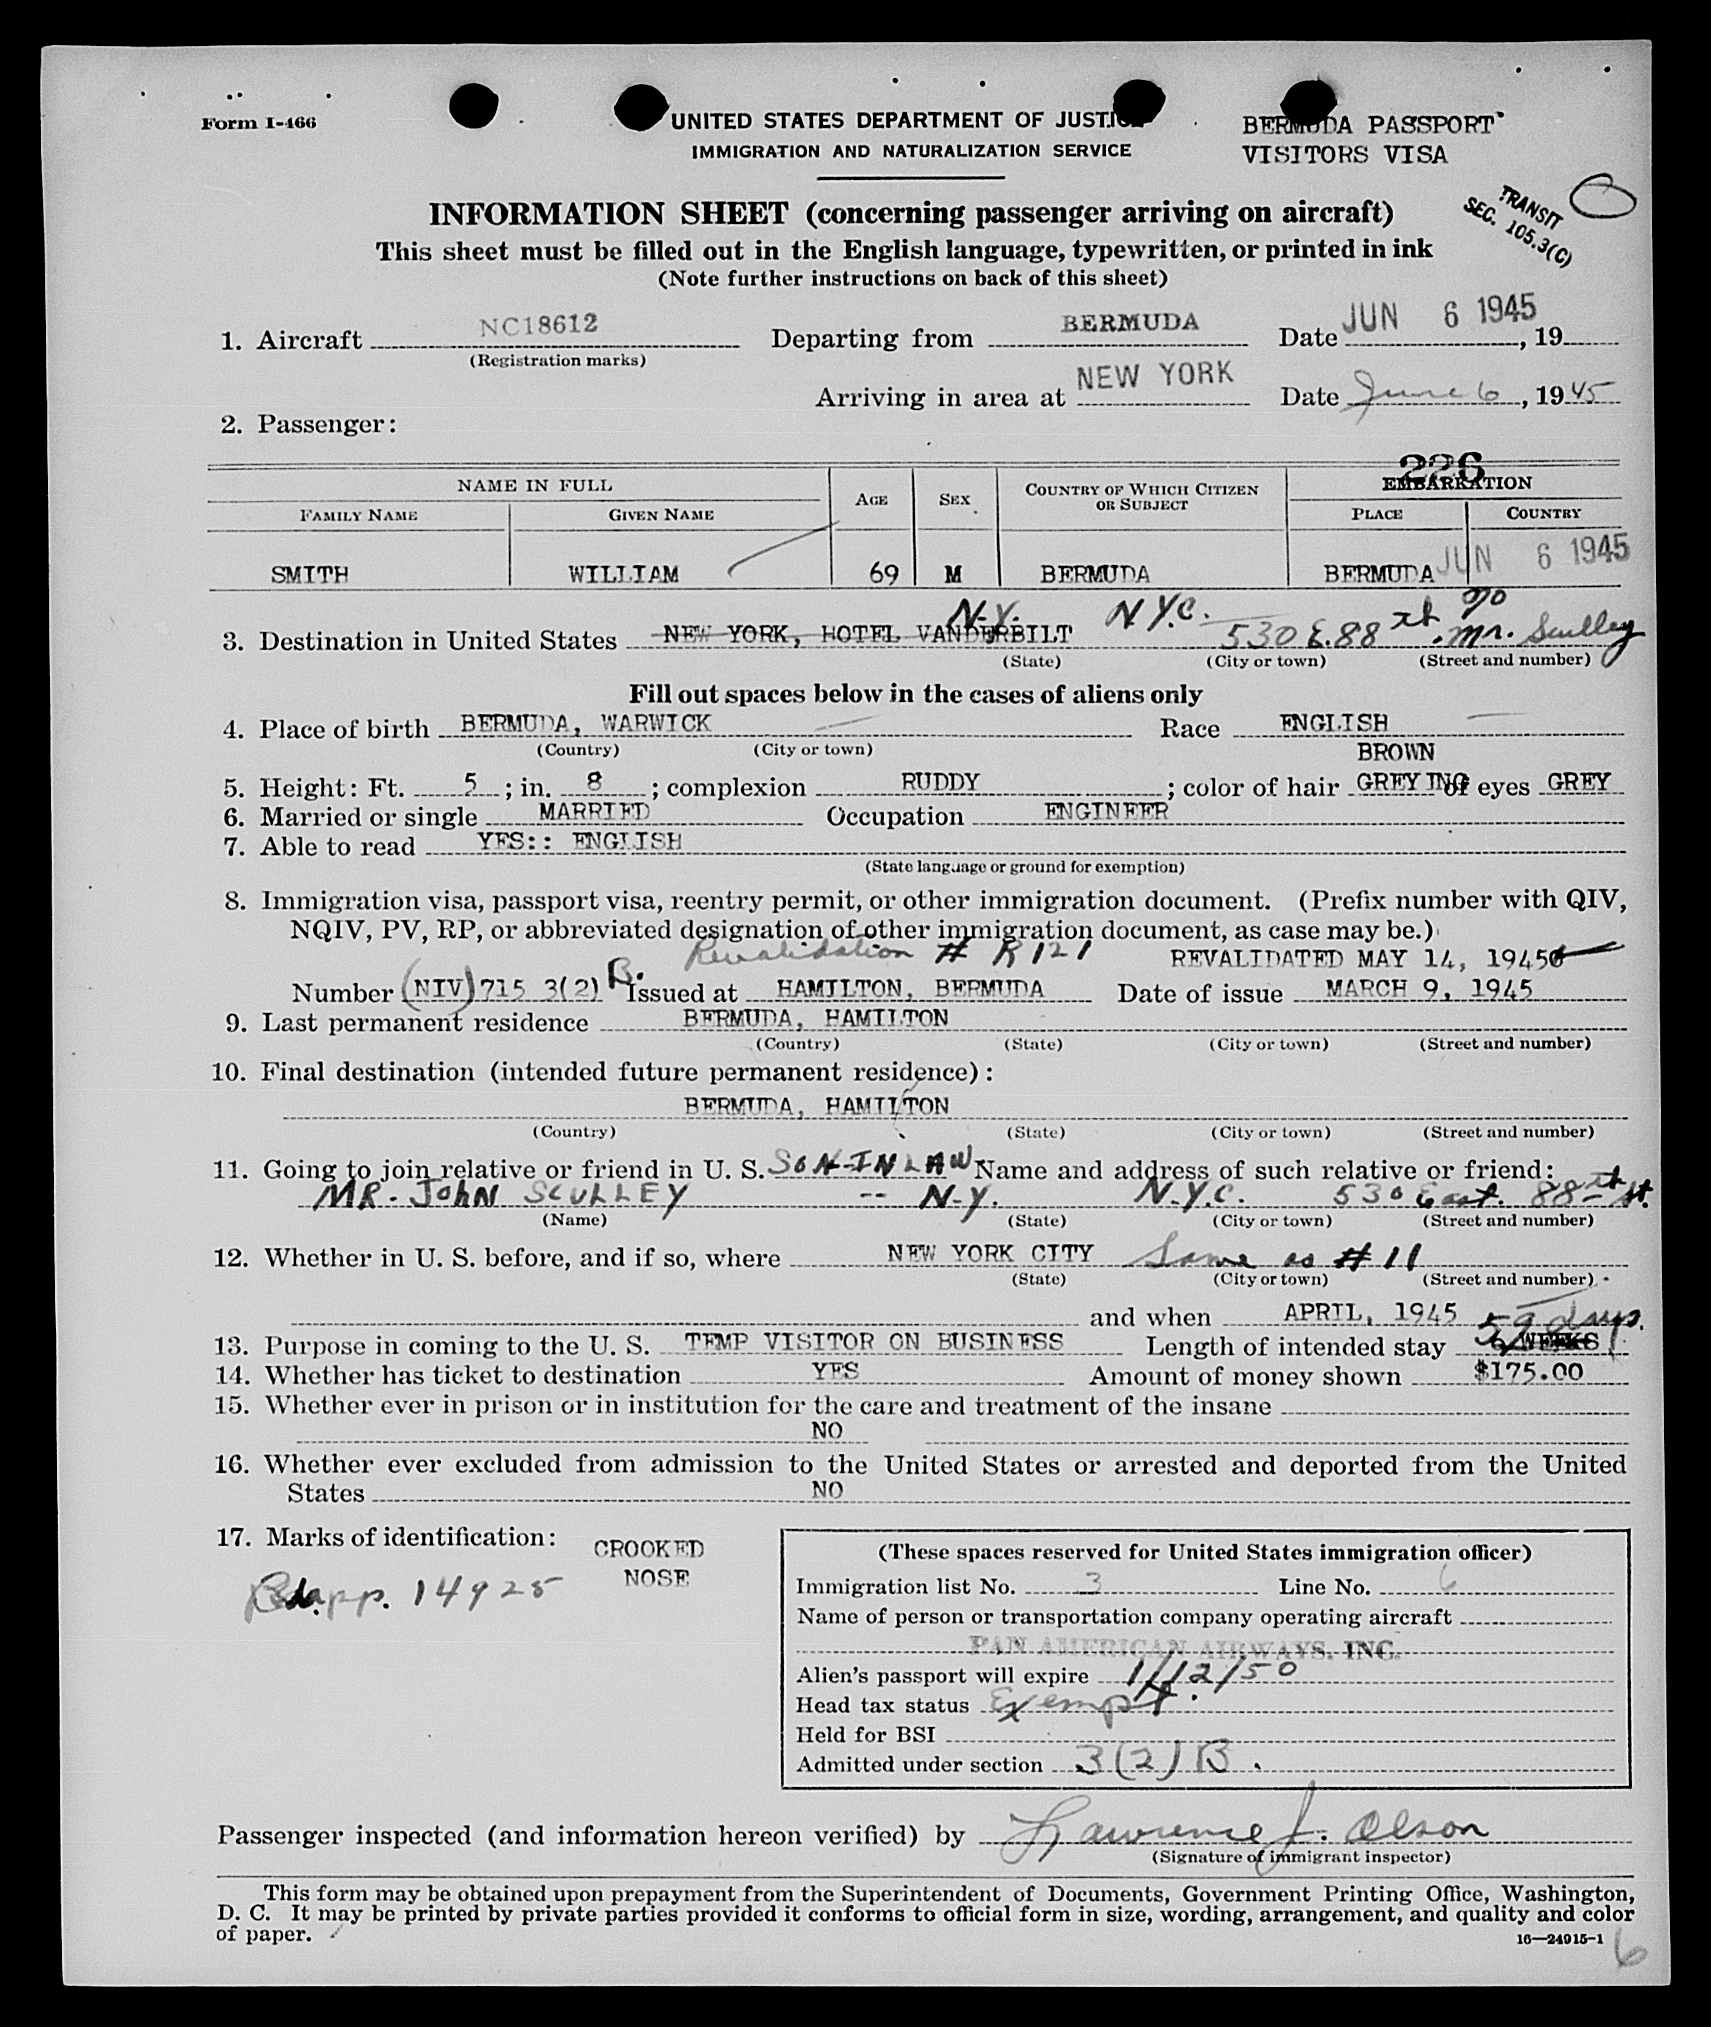 Form I-466
UNITED STATES DEPARTMENT OF JUSTICE
IMMIGRATION AND NATURALIZATION SERVICE
BERMUDA PASSPORT
VISITORS VISA
INFORMATION SHEET (concerning passenger arriving on aircraft)
TRANSIT
SEC. 105.3(C)
This sheet must be filled out in the English language, typewritten, or printed in ink
(Note further instructions on back of this sheet)
1. Aircraft NC18612 Departing from BERMUDA Date JUN 6 1945, 19
(Registration marks)
Arriving in area at NEW YORK Date June 6, 1945
2. Passenger:
226
NAME IN FULL AGE SEX COUNTRY OF WHICH CITIZEN OR SUBJECT EMBARKATION
FAMILY NAME GIVEN NAME PLACE COUNTRY
SMITH WILLIAM 69 M BERMUDA BERMUDA JUN 6 1945
N.Y. N.Y.C. 530 E. 88th % Mr. Sculley
3. Destination in United States NEW YORK, HOTEL VANDERBILT
(State) (City or town) (Street and number)
Fill out spaces below in the cases of aliens only
4. Place of birth BERMUDA, WARWICK Race ENGLISH
(Country) (City or town)
BROWN
5. Height: Ft. 5; in. 8; complexion RUDDY; color of hair GREYING of eyes GREY
6. Married or single MARRIED Occupation ENGINEER
7. Able to read YES:: ENGLISH
(State language or ground for exemption)
8. Immigration visa, passport visa, reentry permit, or other immigration document. (Prefix number with QIV,
NQIV, PV, RP, or abbreviated designation of other immigration document, as case may be.)
Revalidation # R121 REVALIDATED MAY 14, 1945
Number (NIV) 715 3(2) B. Issued at HAMILTON, BERMUDA Date of issue MARCH 9, 1945
9. Last permanent residence BERMUDA, HAMILTON
(Country) (State) (City or town) (Street and number)
10. Final destination (intended future permanent residence):
BERMUDA, HAMILTON
(Country) (State) (City or town) (Street and number)
11. Going to join relative or friend in U. S. SON-IN LAW Name and address of such relative or friend:
MR. JOHN SCULLEY -- N.Y. N.Y.C. 530 East. 88th St.
(Name) (State) (City or town) (Street and number)
12. Whether in U. S. before, and if so, where NEW YORK CITY Same as # 11
(State) (City or town) (Street and number)
and when APRIL, 1945
59 days.
13. Purpose in coming to the U. S. TEMP VISITOR ON BUSINESS Length of intended stay WEEKS
14. Whether has ticket to destination YES Amount of money shown $175.00
15. Whether ever in prison or in institution for the care and treatment of the insane
NO
16. Whether ever excluded from admission to the United States or arrested and deported from the United
States NO
17. Marks of identification: CROOKED
NOSE
pp. 14925
(These spaces reserved for United States immigration officer)
Immigration list No. 3 Line No. 6
Name of person or transportation company operating aircraft
PAN AMERICAN AIRWAYS, INC.
Alien's passport will expire 1/12/50
Head tax status Exempt.
Held for BSI
Admitted under section 3(2)B.
Passenger inspected (and information hereon verified) by Lawrence J. Olson
(Signature of immigrant inspector)
This form may be obtained upon prepayment from the Superintendent of Documents, Government Printing Office, Washington,
D. C. It may be printed by private parties provided it conforms to official form in size, wording, arrangement, and quality and color
of paper.
16—24915-1
6